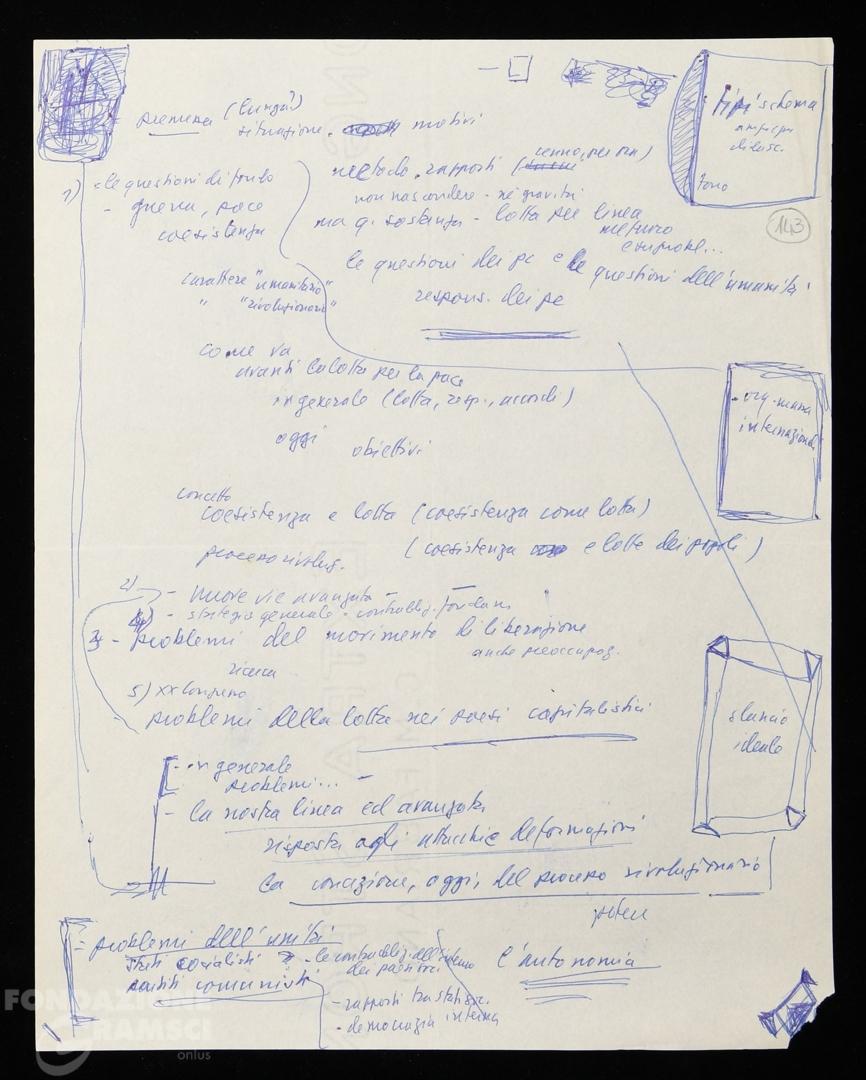 premessa (lunga?)
situazione. motivi
tipi schema
tono
143
metodo. rapporti (cenno, per ora)
non nascondere - né gravità
ma q. sostanza - lotta per linea
1) - le questioni di fondo
- guerra, pace
coesistenza
le questioni dei pc e le questioni dell'umanità
respons. dei pc
carattere "umanitario"
" "rivoluzionario"
come va
avanti la lotta per la pace
in generale (lotta, resp., accordi)
oggi
obiettivi
internazional
concetto
coesistenza e lotta (coesistenza come lotta)
(coesistenza e lotte dei popoli)
processo rivoluz.
2) - nuove vie avanzata -
4) - strategia generale - contraddiz. fondam
3 - problemi del movimento di liberazione
anche preoccupaz.
ricerca
5) XX Congresso
problemi della lotta nei paesi capitalistici
slancio
ideale
- in generale
problemi... -
- la nostra linea ed avanzata
risposta agli attacchi e deformazioni
la concezione, oggi, del processo rivoluzionario
potere
- problemi dell'unità
stati socialisti
partiti comunisti
- le contraddiz. all'interno
dei paesi soc
- rapporti tra stati soc.
- democrazia interna
l'autonomia
FONDAZIONE
GRAMSCI
onlus